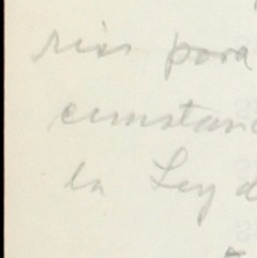 rias para
cunstan
la Ley d